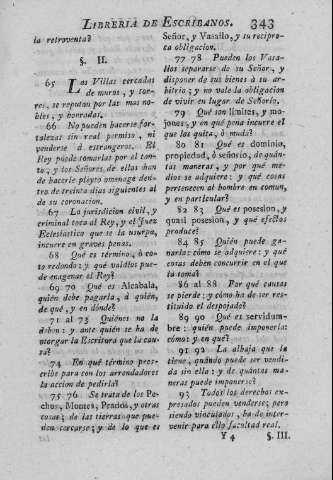 LIBRERIA DE ESCRIBANOS. 343
la retroventa?
§. II.
65 Las Villas cercadas
de muros, y tor-
res, se reputan por las mas no-
bles, y honradas.
66 No pueden hacerse for-
talezas sin real permiso, ni
venderse á estrangeros. El
Rey puede tomarlas por el tan-
to, y los Señores de ellas han
de hacerle pleyto omenage den-
tro de treinta dias siguientes al
de su coronacion.
67 La jurisdiccion civil, y
criminal toca al Rey, y el Juez
Eclesiastico que se la usurpa,
incurre en graves penas.
68 Qué es término, ó co-
to redondo: y qué valdíos pue-
de enagenar el Rey?
69 70 Qué es Alcabala,
quién debe pagarla, á quién,
de qué, y en dónde?
71 al 73 Quiénes no la
deben: y ante quién se ha de
otorgar la Escritura que la cau-
sa?
74 En qué término prescribe para con los arrendadores
la accion de pedirla?
75 76 Se trata de los Pe-
chos, Montes, Prados, y otras
cosas; de las tierras que pue-
den cercarse; y de lo que es
Señor, y Vasallo, y su recípro-
ca obligacion.
77 78 Pueden los Vasa-
llos separarse de su Señor, y
disponer de sus bienes á su ar-
bitrio; y no vale la obligacion
de vivir en lugar de Señorío.
79 Qué son límites, y mo-
jones, y en qué pena incurre el
que los quita, ó muda?
80 81 Qué es dominio,
propiedad, ó señorío, de quán-
tas maneras, y por qué me-
dios se adquiere: y qué cosas
pertenecen al hombre en comun,
y en particular?
82 83 Qué es posesion, y
quasi posesion, y qué efectos
produce?
84 85 Quién puede ga-
narla: cómo se adquiere: y qué
cosas deben concurrir en el que
la toma?
86 al 88 Por qué causas
se pierde: y cómo ha de ser res-
tituído el despojado?
89 90 Qué es servidum-
bre: quién puede imponerla:
cómo: y en que?
91 92 La alhaja que la
tiene, quándo puede ser vendi-
da sin ella: y de quántas ma-
neras puede imponerse?
93 Todos los derechos ex-
presados pueden venderse; pero
siendo vinculados, ha de inter-
venir para ello facultad real.
Y 4 §. III.